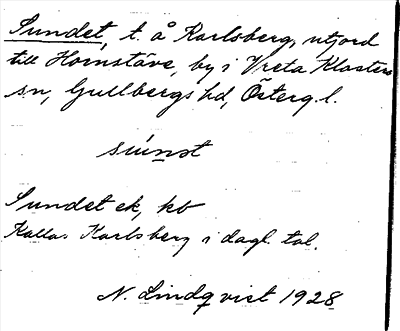 Sundet, t. å Karlsberg, utjord
till Hornstäve, by i Vreta Klosters
sn, Gullbergs hd, Östergl.
súnst
Sundet ek, kb
Kallas Karlsberg i dagl. tal.
N. Lindqvist 1928